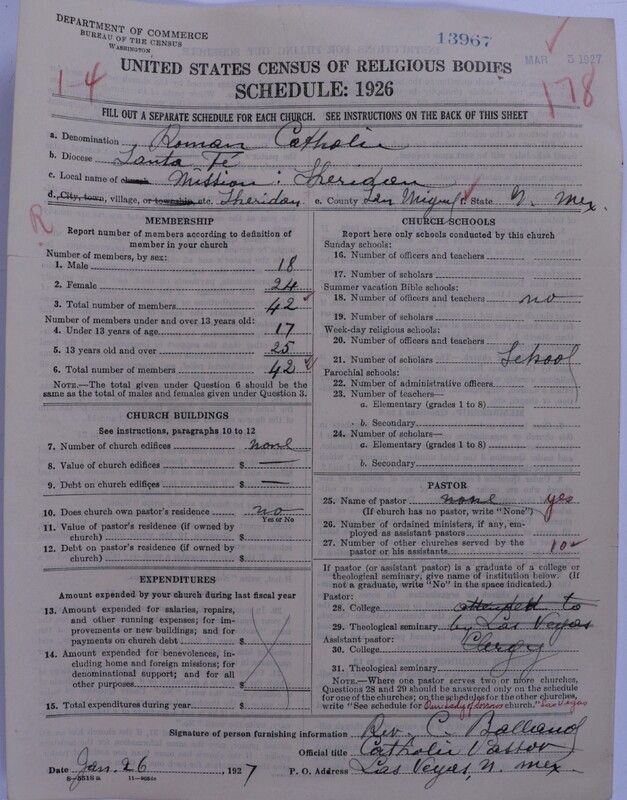 DEPARTMENT OF COMMERCE
BUREAU OF THE CENSUS
WASHINGTON
13967
MAR 5 1927
1-4
178
UNITED STATES CENSUS OF RELIGIOUS BODIES
SCHEDULE: 1926
FILL OUT A SEPARATE SCHEDULE FOR EACH CHURCH. SEE INSTRUCTIONS ON THE BACK OF THIS SHEET
a. Denomination Roman Catholic
b. Diocese Santa Fe
c. Local name of church Mission: Sheridan
d. City, town, village, or township, etc. Sheridan e. County San Miguel f. State N. Mex.
R
MEMBERSHIP
Report number of members according to definition of
member in your church
Number of members, by sex:
1. Male 18
2. Female 24
3. Total number of members 42
Number of members under and over 13 years old:
4. Under 13 years of age 17
5. 13 years old and over 25
6. Total number of members 42
NOTE.—The total given under Question 6 should be the
same as the total of males and females given under Question 3.
CHURCH BUILDINGS
See instructions, paragraphs 10 to 12
7. Number of church edifices none
8. Value of church edifices $ —
9. Debt on church edifices $ —
10. Does church own pastor's residence no
Yes or No
11. Value of pastor's residence (if owned by
church) $
12. Debt on pastor's residence (if owned by
church) $
EXPENDITURES
Amount expended by your church during last fiscal year
13. Amount expended for salaries, repairs,
and other running expenses; for im-
provements or new buildings; and for
payments on church debt $
14. Amount expended for benevolences,
including home and foreign missions; for
denominational support; and for all
other purposes $
15. Total expenditures during year $
CHURCH SCHOOLS
Report here only schools conducted by this church
Sunday schools:
16. Number of officers and teachers
17. Number of scholars
Summer vacation Bible schools:
18. Number of officers and teachers no
19. Number of scholars
Week-day religious schools:
20. Number of officers and teachers
21. Number of scholars School
Parochial schools:
22. Number of administrative officers
23. Number of teachers—
a. Elementary (grades 1 to 8)
b. Secondary
24. Number of scholars—
a. Elementary (grades 1 to 8)
b. Secondary
PASTOR
25. Name of pastor none yes
(If church has no pastor, write "None")
26. Number of ordained ministers, if any, em-
ployed as assistant pastors
27. Number of other churches served by the
pastor or his assistants
If pastor (or assistant pastor) is a graduate of a college or
theological seminary, give name of institution below. (If
not a graduate, write "No" in the space indicated.)
Pastor:
28. College attended to
29. Theological seminary by Las Vegas
Assistant pastor:
30. College Clergy
31. Theological seminary
NOTE.—Where one pastor serves two or more churches,
Questions 28 and 29 should be answered only on the schedule
for one of the churches; on the schedules for the other churches,
write "See schedule for Our Lady of Sorrows church." Las Vegas
Signature of person furnishing information Rev. C. Balland
Official title Catholic Pastor
Date Jan. 26, 1927 P. O. Address Las Vegas, N. Mex.